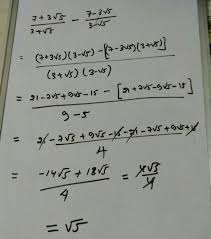 7+3√5/3+√5 − 7−3√5/3−√5
= (7+3√5)(3−√5) − [(7−3√5)(3+√5)] / (3+√5)(3−√5)
= 21−7√5+9√5−15 − [21+7√5−9√5−15] / 9−5
= 21−7√5+9√5−15−21−7√5+9√5+15 / 4
= −14√5+18√5 / 4 = 4√5/4
= √5